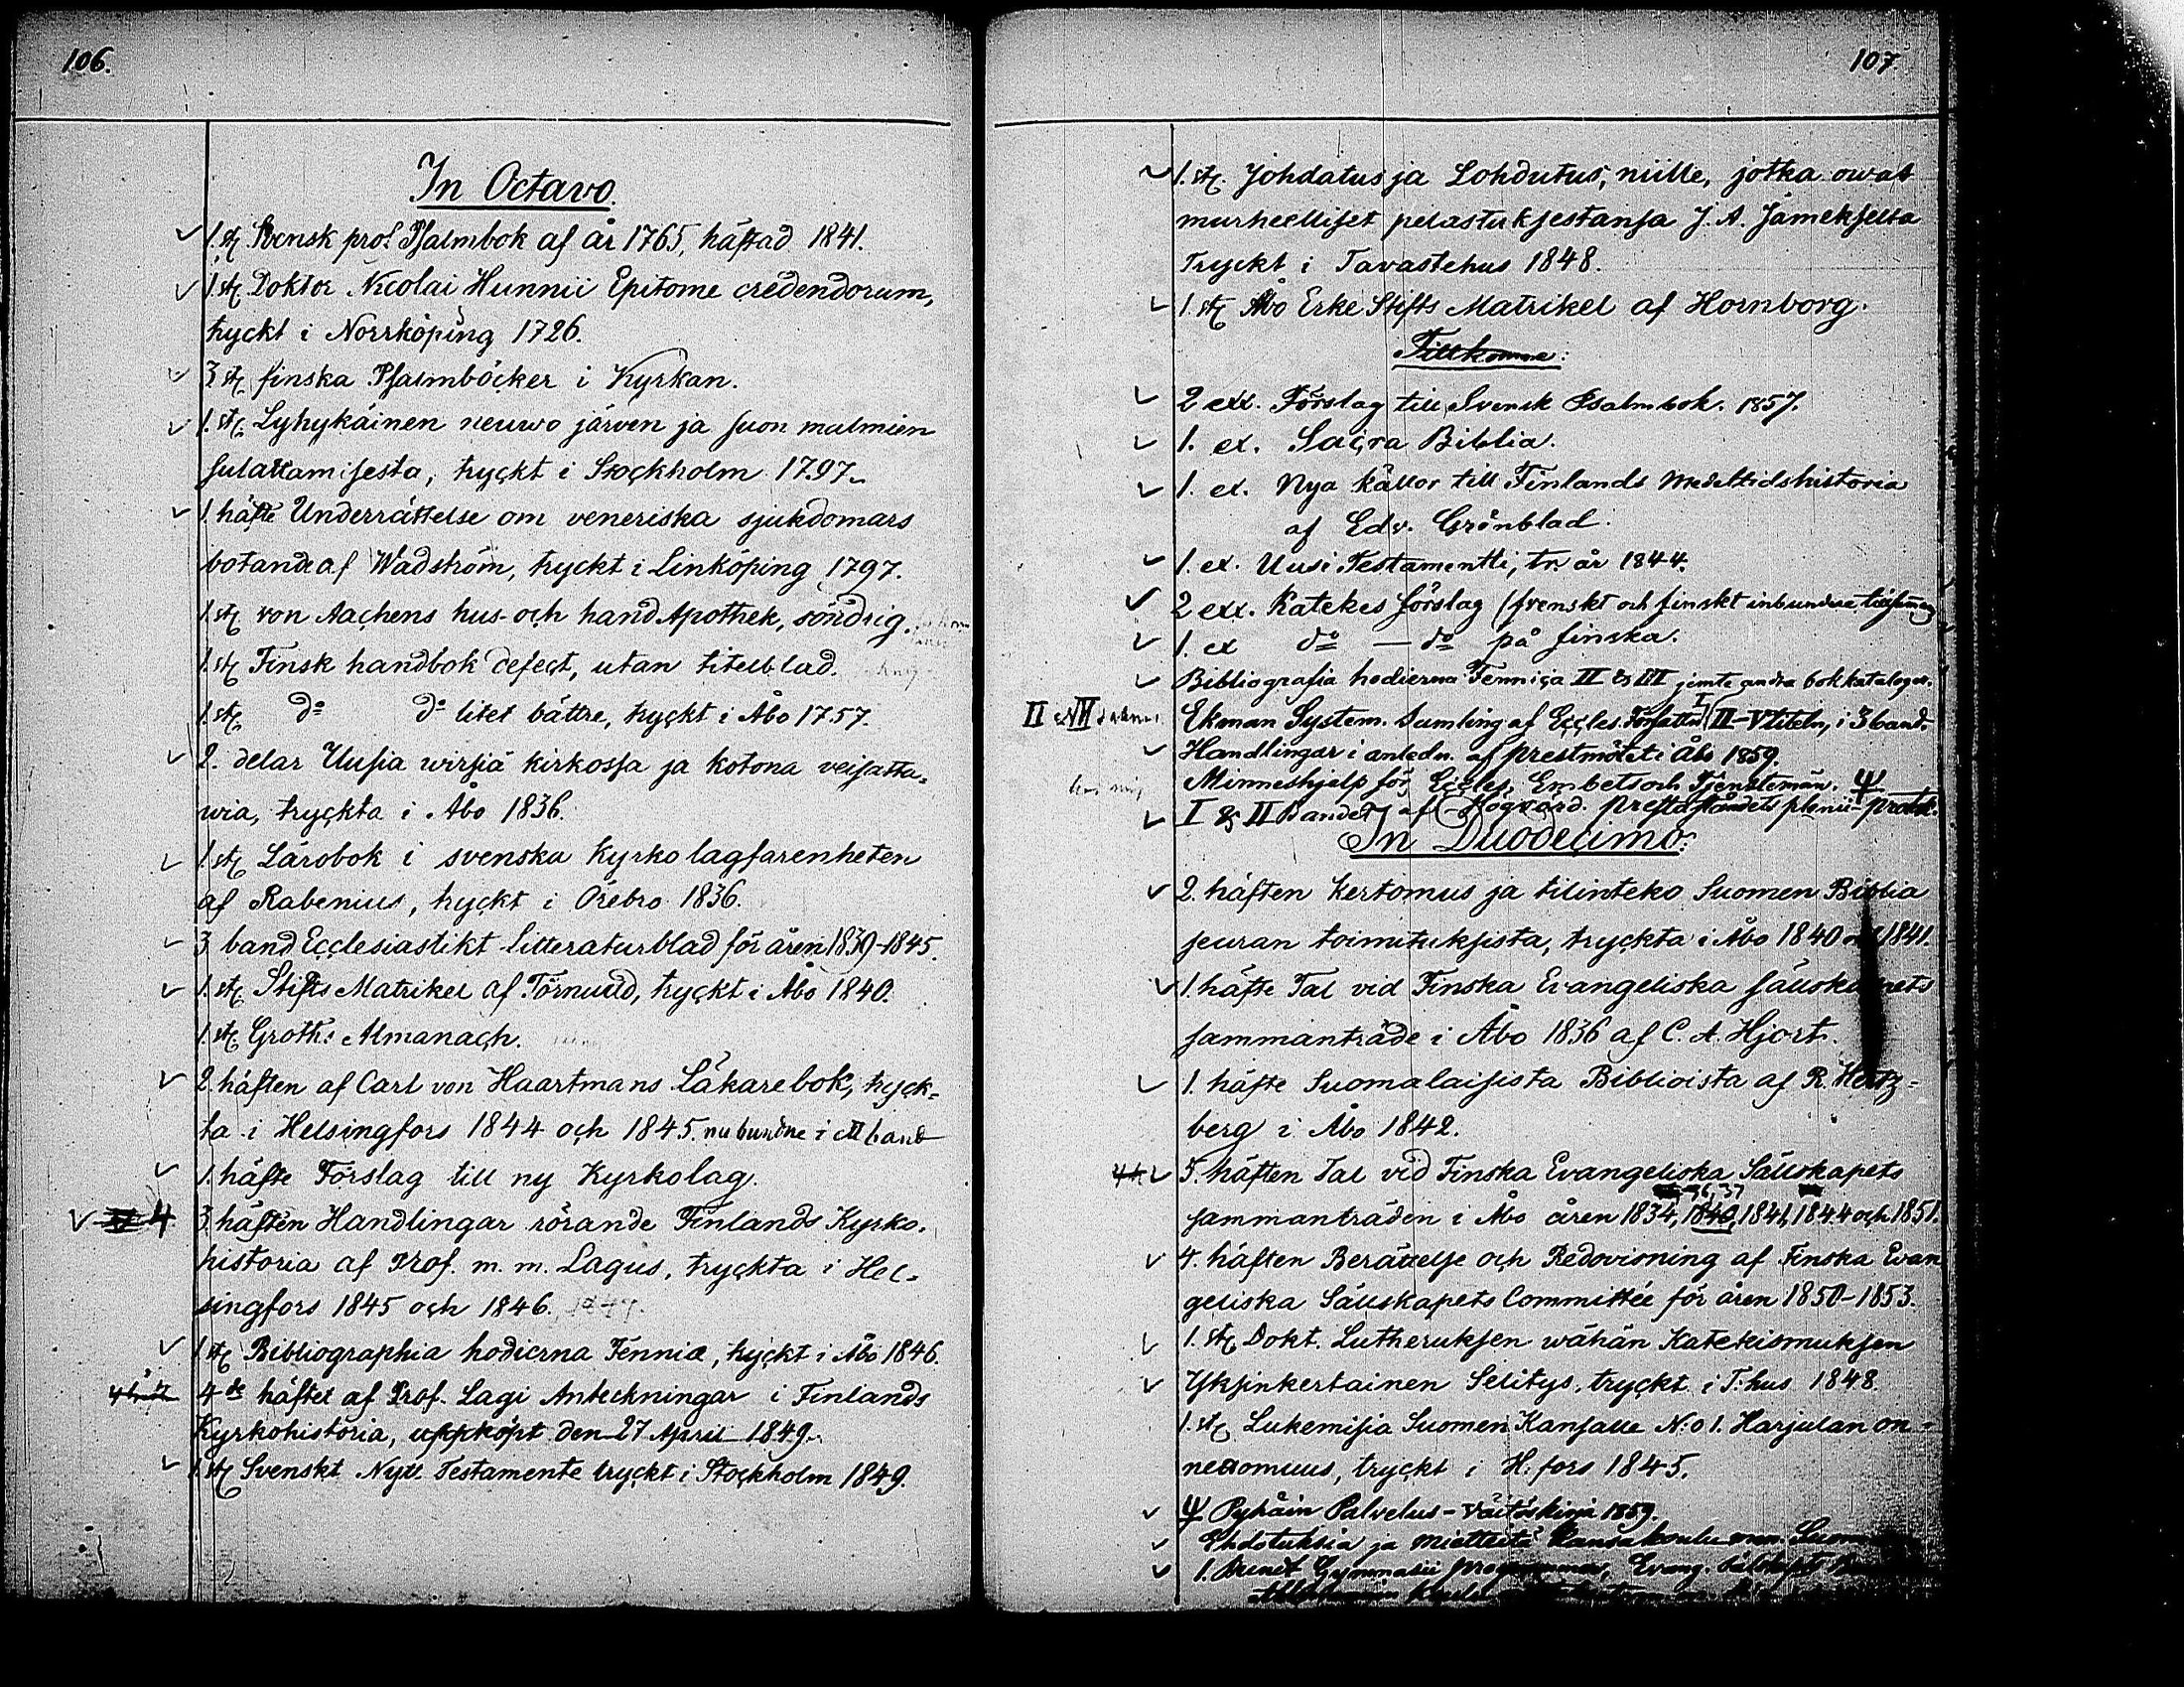 106.
In Octavo.
1. st. Svensk prof Psalmbok af år 1765, häftad 1841.
1. st. Doktor Nicolai Hunnii Epitome credendorum,
tryckt i Norrköping 1726.
3 st. finska Psalmböcker i Kyrkan.
1. st. Lyhykäinen neuwo järven ja suon malmien
sulattamisesta, tryckt i Stockholm 1797.
1. häfte Underrättelse om veneriska sjukdomars
botande af Wadström, tryckt i Linköping 1797.
1. st. von Aachens hus- och hand Apothek, söndrig.
1. st. Finsk handbok defect, utan titelblad.
1. st. do do litet bättre, tryckt i Åbo 1757.
2. delar Uusia wirsiä kirkossa ja kotona veisatta-
wia, tryckta i Åbo 1836.
1. st. Lärobok i svenska Kyrkolagfarenheten
af Rabenius, tryckt i Örebro 1836.
3 band Ecclesiastikt litteraturblad för åren 1839-1845.
1. st. Stifts Matrikel af Törnudd, tryckt i Åbo 1840.
1. st. Groths Almanach.
2. häften af Carl von Haartmans Läkarebok, tryck-
ta i Helsingfors 1844 och 1845. nu bundne i ett band
1. häfte Förslag till ny Kyrkolag.
4 3. häften Handlingar rörande Finlands Kyrko-
historia af Prof. m. m. Lagus, tryckta i Hel-
singfors 1845 och 1846. 1847.
1 st. Bibliographia hodierna Fenniæ, tryckt i Åbo 1846.
4de häftet af Prof. Lagi Anteckningar i Finlands
Kyrkohistoria, uppköpt den 27 April 1849.
1. st. Svenskt Nytt Testamente tryckt i Stockholm 1849.
107
1. st. Johdatus ja Lohdutus, niille, jotka owat
murheelliset pelastuksestansa J. A. Jämekseltä
Tryckt i Tavastehus 1848.
1. st. Åbo Erke Stifts Matrikel af Hornborg.
Tillkomne:
2 exx. Förslag till Svensk Psalmbok. 1857.
1. ex. Sacra Biblia.
1. ex. Nya källor till Finlands Medeltidshistoria
af Edv. Grönblad.
1. ex. Uusi Testamentti, tr. år 1844.
2 exx. Katekes förslag (svenskt och finskt inbundna
1. ex do — do på finska.
Bibliografia hodierna Fennica II & III jemte andra bokkataloger.
II Ekman System. Samling af Eccles. Författn. I II-V titeln, i 3 band.
Handlingar i anledn. af prestmötet i Åbo 1859.
Minneshjelp för Eccles. Embets och Tjenstemän. Ψ
I & II Bandet af Högvörd. prestaståndets plenii protok.
In Duodecimo:
2. häften Kertomus ja tilinteko Suomen Biblia
seuran toimituksista, tryckta i Åbo 1840 och 1841.
1. häfte Tal vid Finska Evangeliska sällskapets
sammanträde i Åbo 1836 af C. A. Hjort.
1. häfte Suomalaisista Biblioista af R. Hertz-
berg i Åbo 1842.
5. häften Tal vid Finska Evangeliska Sällskapets
36, 37
sammanträden i Åbo åren 1834, 1840, 1841, 1844 och 1851.
4. häften Berättelse och Redovisning af Finska Evan
geliska Sällskapets Committée för åren 1850-1853.
1. st. Dokt. Lutheruksen wähän Katekismuksen
Yksinkertainen Selitys, tryckt i T:hus 1848.
1. st. Lukemisia Suomen Kansalle N:o 1. Harjulan on-
nettomuus, tryckt i H:fors 1845.
Ψ Pyhäin Palvelus - väitöskirja 1859.
Ehdotuksia ja mietteitä Kansakoulu
1. Bundt Gymnasii programmer, Evang.